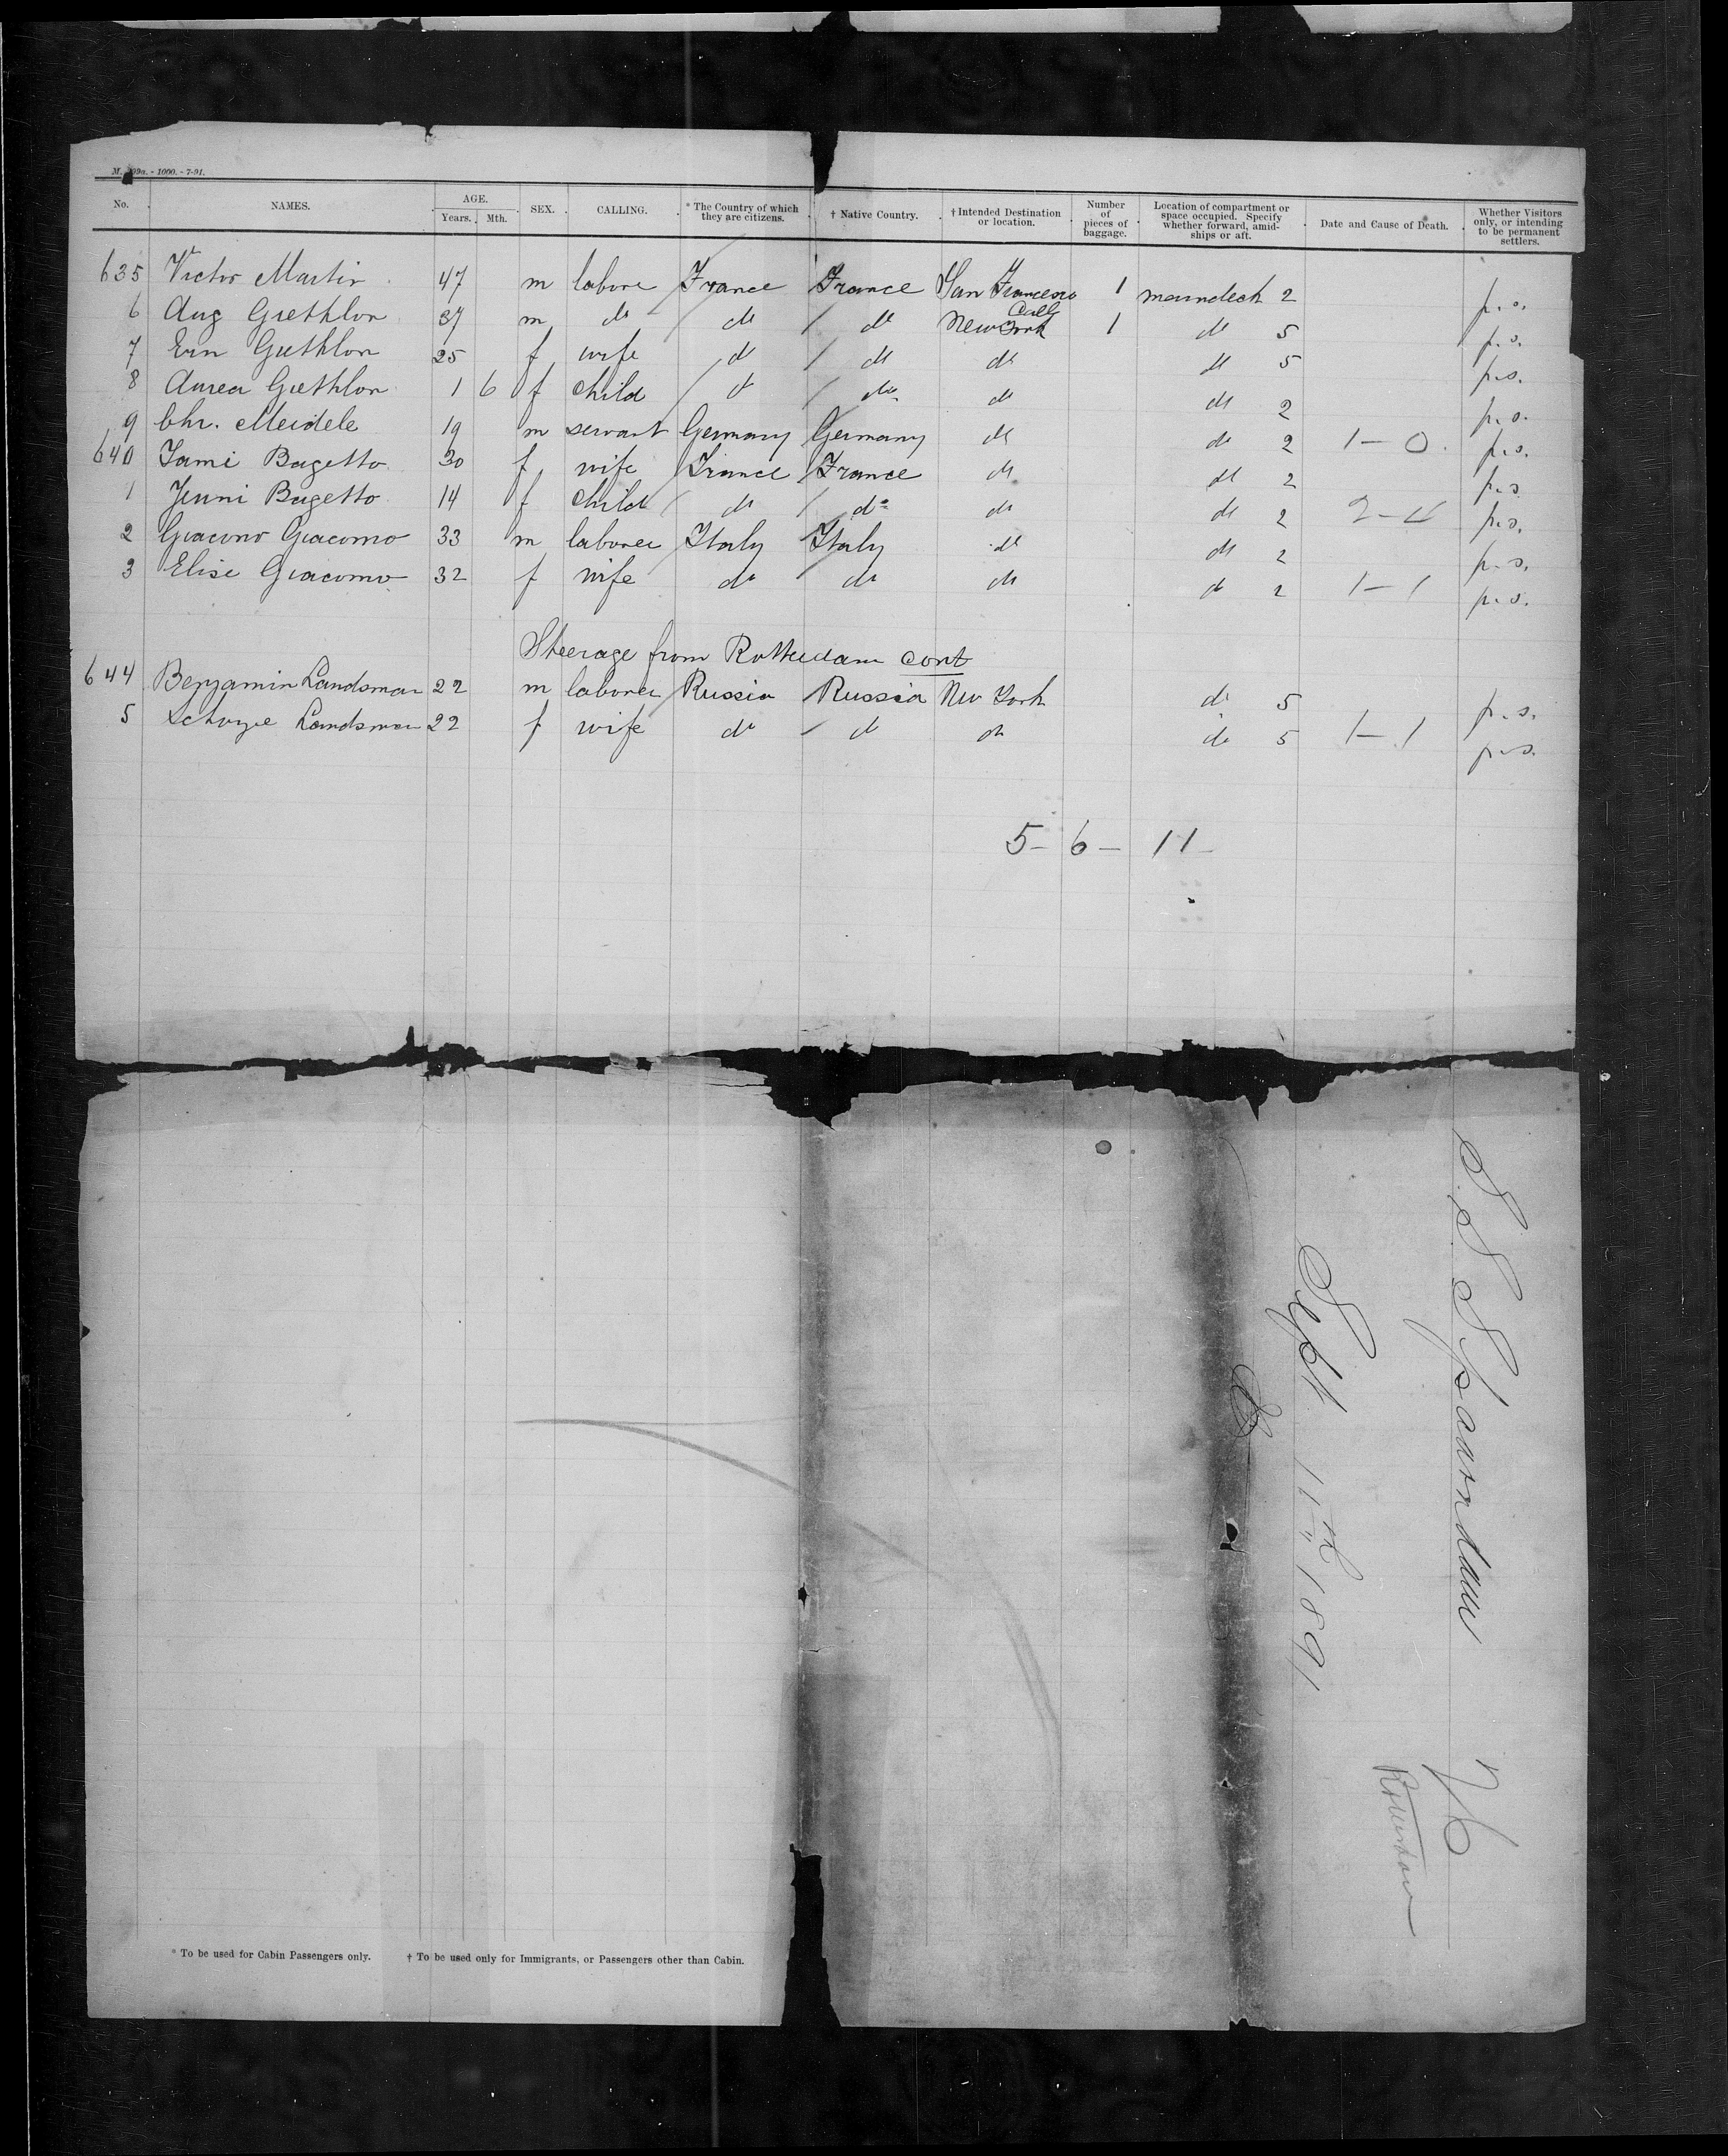 M. 99a. - 1000. - 7-91.
No. NAMES. AGE. Years. Mth. SEX. CALLING. * The Country of which they are citizens. † Native Country. † Intended Destination or location. Number of pieces of baggage. Location of compartment or space occupied. Specify whether forward, amid-ships or aft. Date and Cause of Death. Whether Visitors only, or intending to be permanent settlers.
635 Victor Martin 47 m labore France France San Francisco Calf 1 maindeck 2 p.s.
6 Aug Grethlon 37 m do do do New York 1 do 5 p.s.
7 Ern Grethlon 25 f wife do do do do 5 p.s.
8 Aurea Grethlon 1 6 f child do do do do 2 p.s.
9 Chr. Meidele 19 m servant Germany Germany do do 2 1-0 p.s.
640 Fami Bagetto 30 f wife France France do do 2 p.s.
1 Jenni Bagetto 14 f child do do do do 2 2-4 p.s.
2 Giacono Giacomo 33 m laborer Italy Italy do do 2 p.s.
3 Elise Giacomo 32 f wife do do do do 2 1-1 p.s.
Steerage from Rotterdam cont
644 Benjamin Landsman 22 m laborer Russia Russia New York do 5 p.s.
5 Landsman 22 f wife do do do do 5 1-1 p.s.
5- 6- 11-
S. S. Spaarndam
Sept 11th 1891
76
Rotterdam
* To be used for Cabin Passengers only. † To be used only for Immigrants, or Passengers other than Cabin.